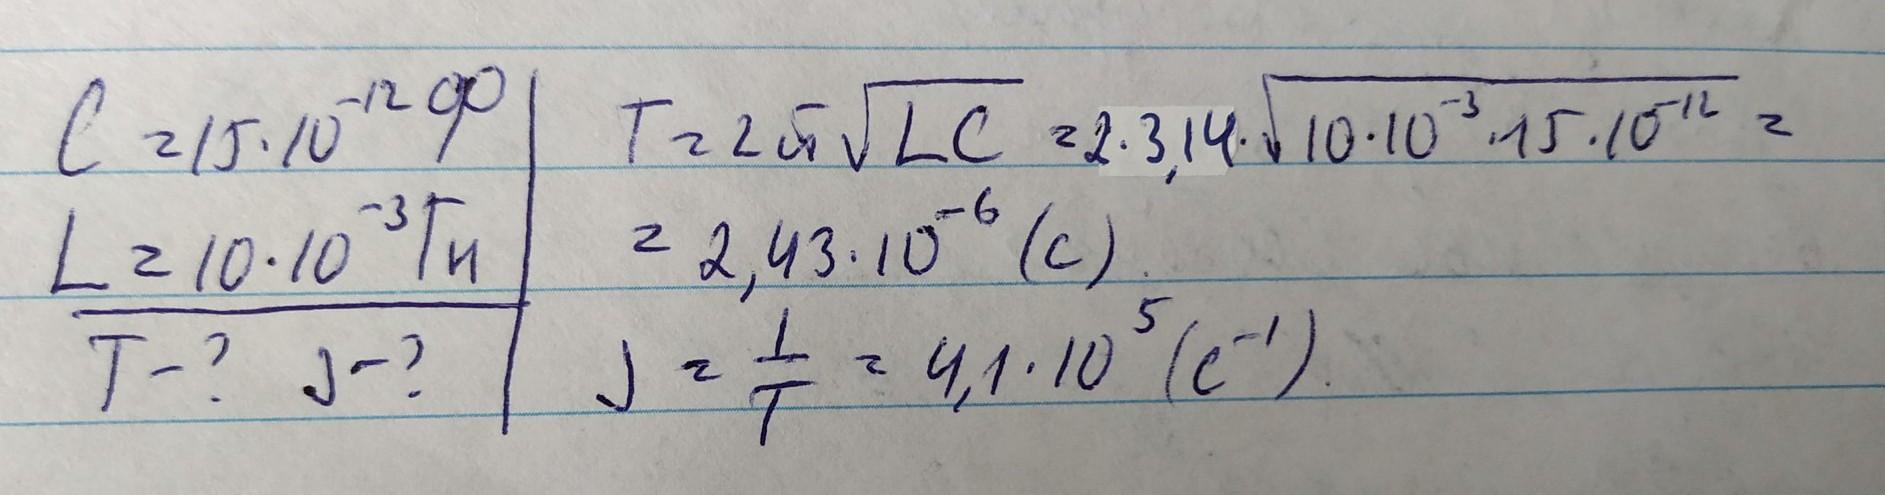 C = 15·10⁻¹² Ф
L = 10·10⁻³ Гн
T - ? ν - ?
T = 2π√LC = 2·3,14·√10·10⁻³·15·10⁻¹² =
= 2,43·10⁻⁶ (с).
ν = 1/T = 4,1·10⁵ (с⁻¹).